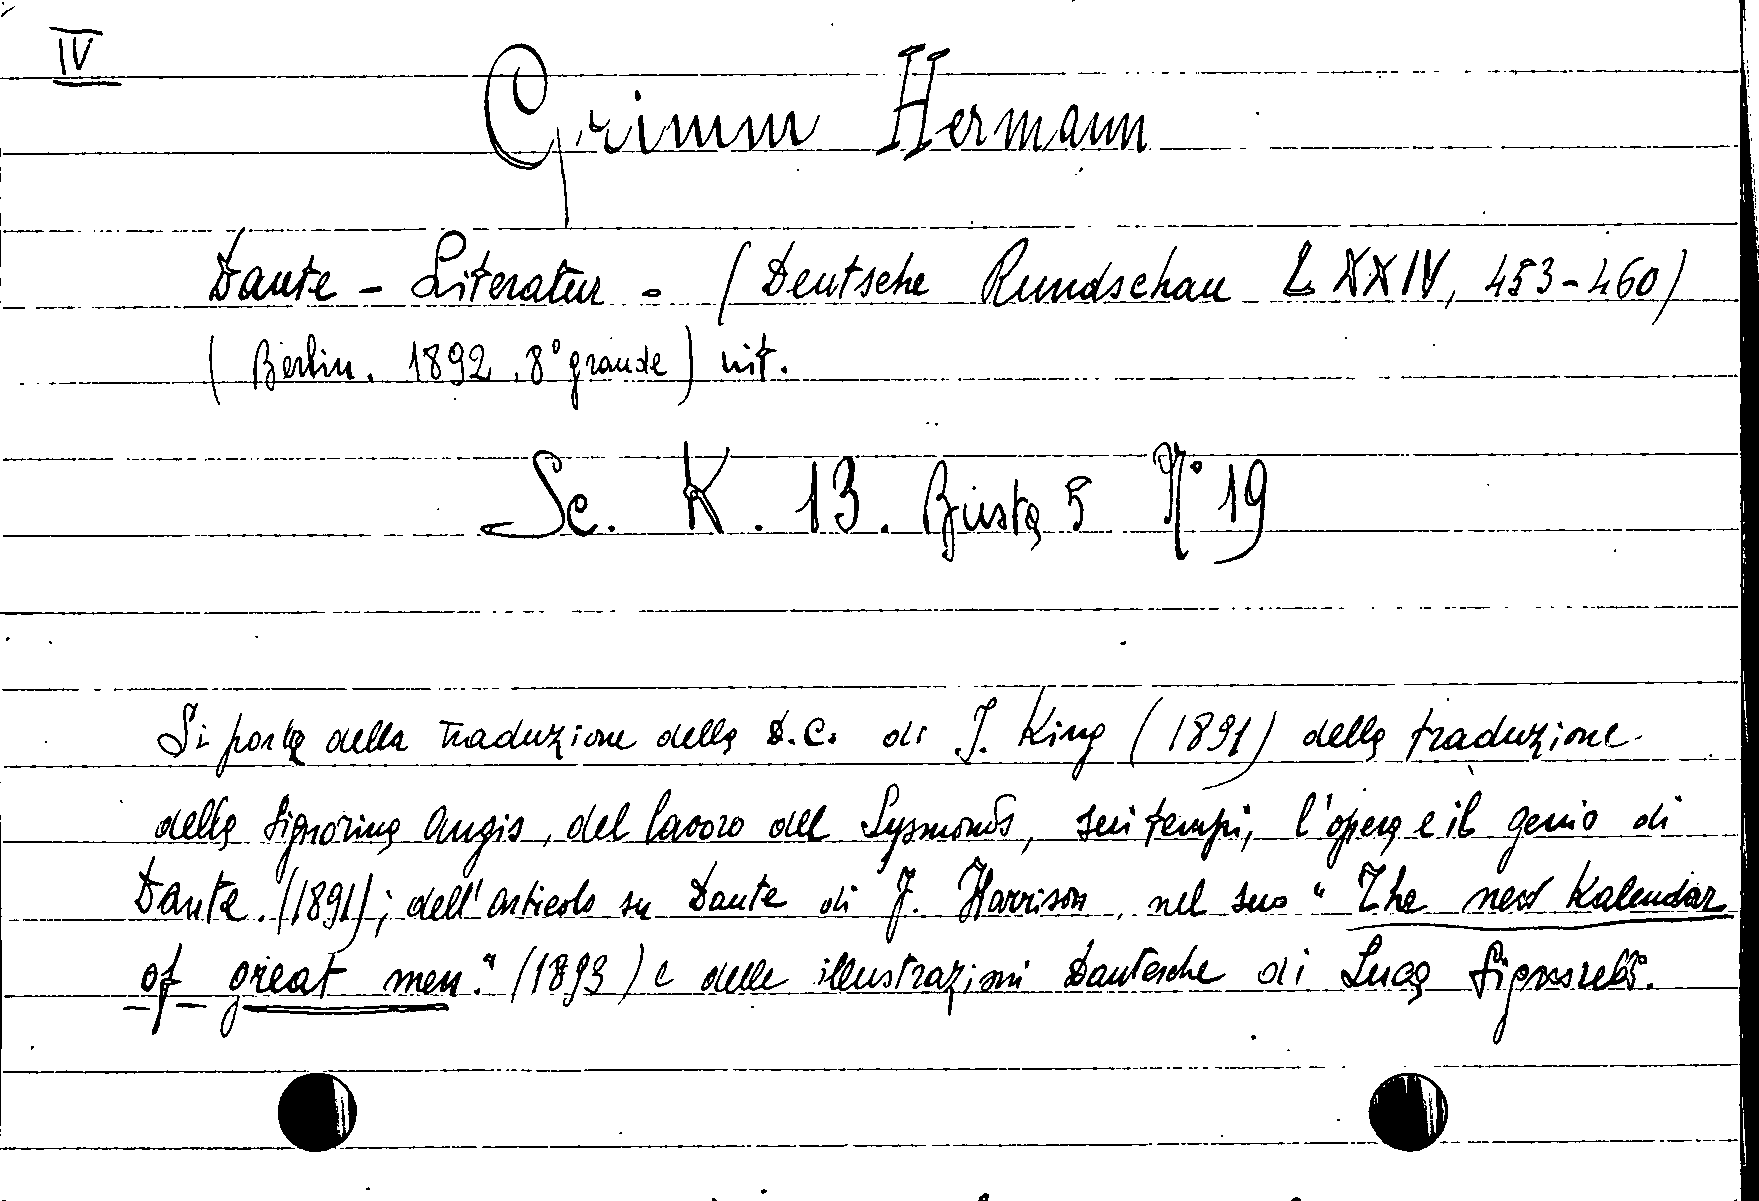 IV
Grimm Hermann
Dante - Literatur - (Deutsche Rundschau LXXIV, 453-460)
(Berlin. 1892. 8° grande) nit.
Sc. K. 13. Busta 5 N° 19
Si parla della traduzione della D.C. di J. King (1891) della traduzione
della signorina Augis, del lavoro del Sysmonds, sui tempi, l'opera e il genio di
Dante. (1891); dell'articolo su Dante di J. Harrison, nel suo "The new Kalendar
of great men." (1893) e delle illustrazioni Dantesche di Luca Signorelli.